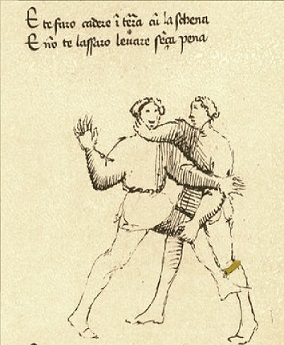 E te faro cadere i tẽra cũ la schena
E nõ te lassaro leuare sẽça pena